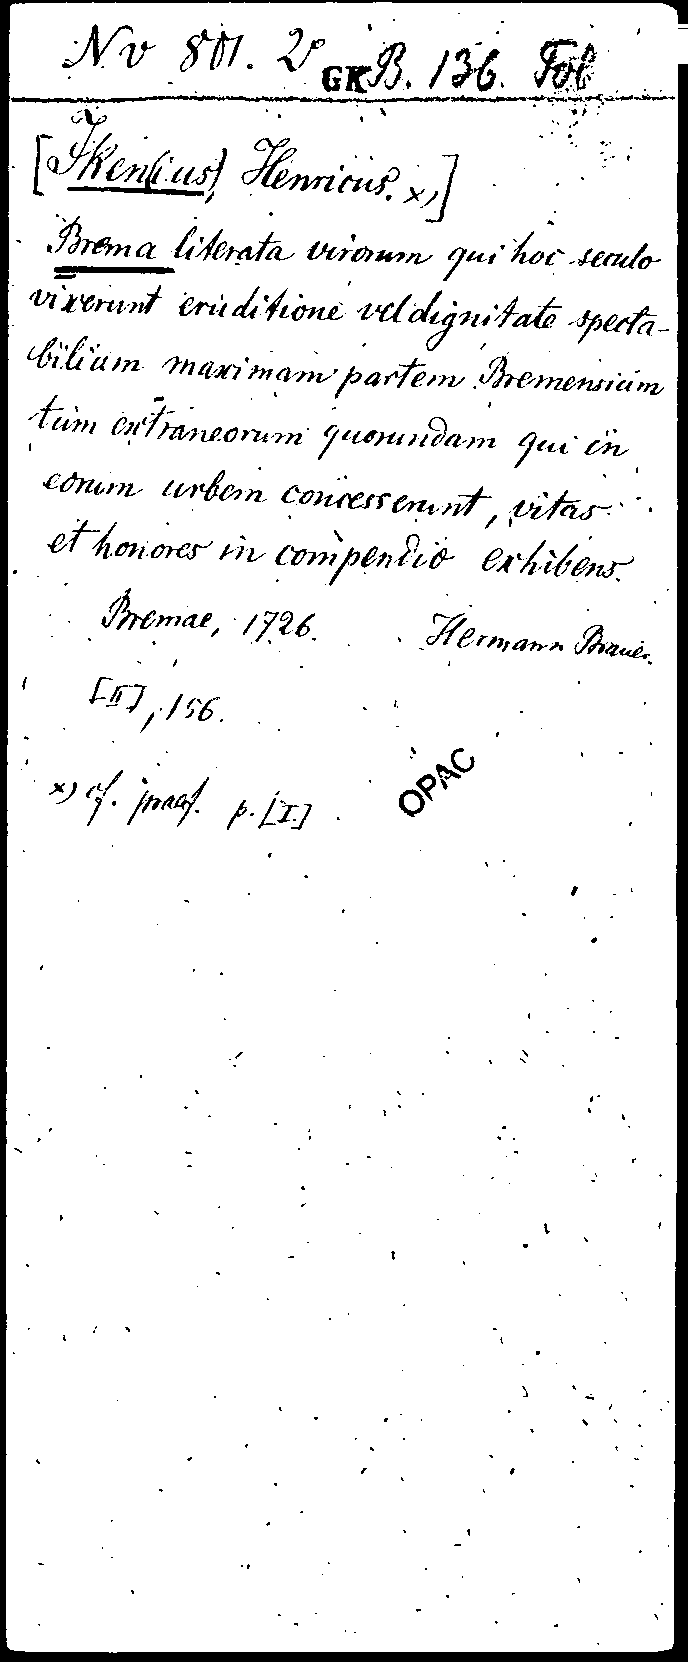 Nv 801. 2°
GK B. 136. Fol
[Iken(ius), Henricus. x)]
Brema literata virorum qui hoc seculo
vixerunt eruditione vel dignitate specta-
bilium maximam partem Bremensium
tum extraneorum quorundam qui in
eorum urbem concesserunt, vitas
et honores in compendio exhibens.
Bremae, 1726. Hermann Brauer.
[II], 156.
x) cf. praef. p. [I]
OPAC